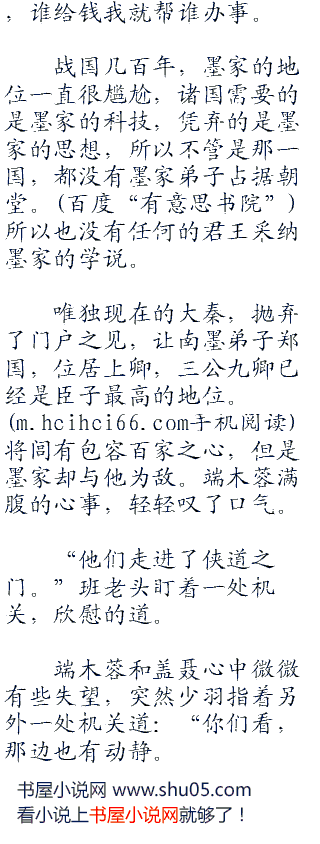 ，谁给钱我就帮谁办事。
战国几百年，墨家的地
位一直很尴尬，诸国需要的
是墨家的科技，凭弃的是墨
家的思想，所以不管是那一
国，都没有墨家弟子占据朝
堂。(百度“有意思书院”)
所以也没有任何的君王采纳
墨家的学说。
唯独现在的大秦，抛弃
了门户之见，让南墨弟子郑
国，位居上卿，三公九卿已
经是臣子最高的地位。
(m.hcihci66.com手机阅读)
将闾有包容百家之心，但是
墨家却与他为敌。端木蓉满
腹的心事，轻轻叹了口气。
“他们走进了侠道之
门。”班老头盯着一处机
关，欣慰的道。
端木蓉和盖聂心中微微
有些失望，突然少羽指着另
外一处机关道：“你们看，
那边也有动静。
书屋小说网 www.shu05.com
看小说上书屋小说网就够了！